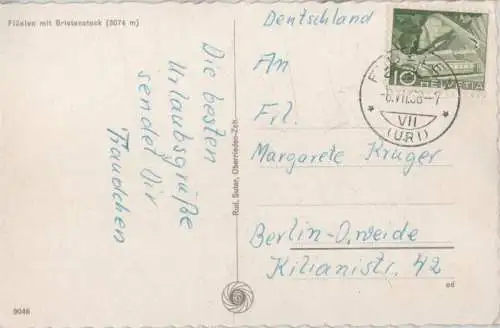 Flüelen mit Bristenstock (3074 m)
Die besten
Urlaubsgrüße
sendet Dir
Traudchen
9046
Rud. Suter, Oberrieden-Zch.
Deutschland
An
Frl.
Margarete Krüger
Berlin-O.weide
Kilianistr. 42
10 HELVETIA
VII
(URI)